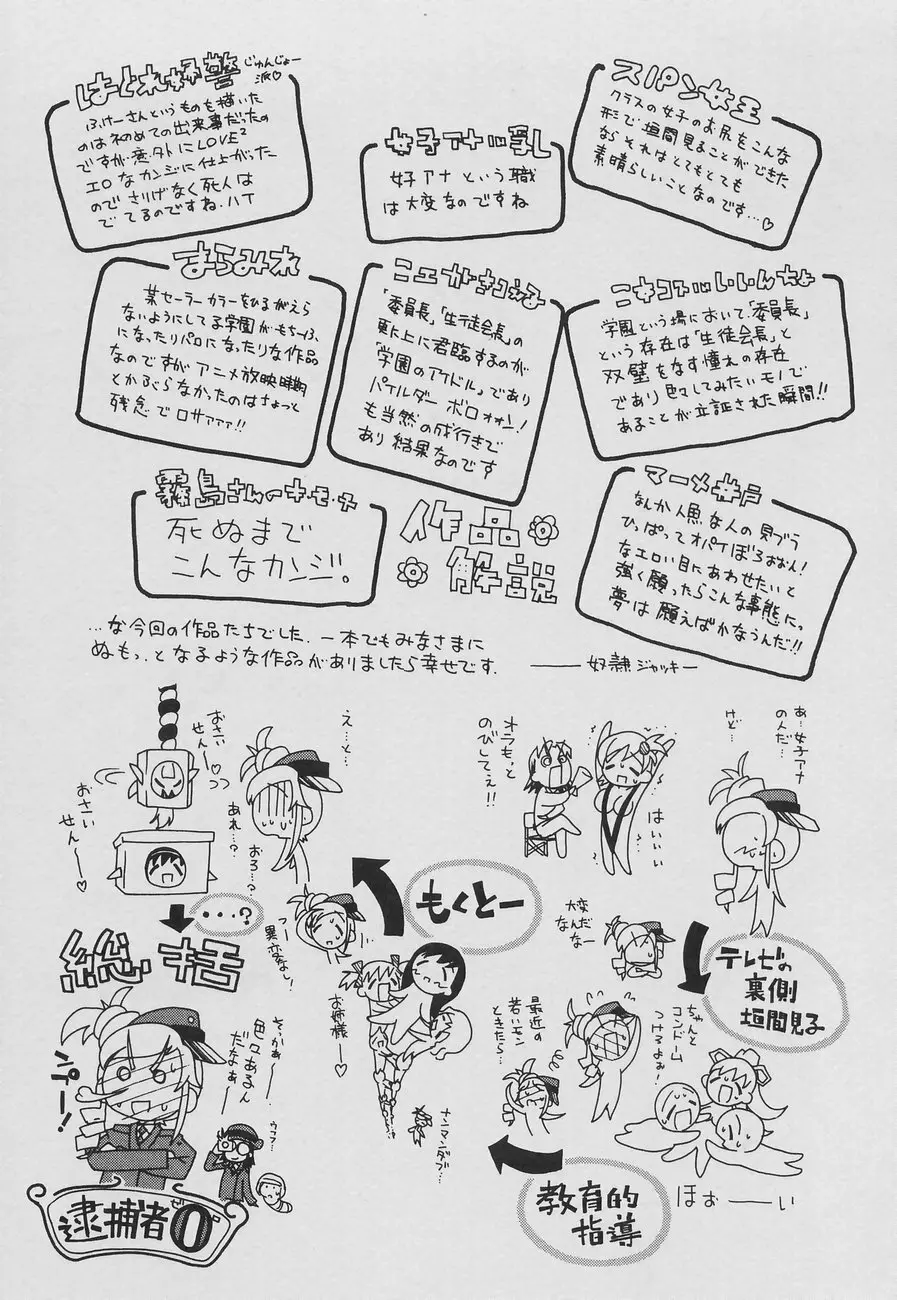 はぐれ好警
じゅんじょー派♡
ふけーさんというものを描いた
のは初めての出来事だったの
ですが意外にLOVE²
エロなカンジに仕上がった
のでさりげなく死人は
でてるのですね。ハイ
女子アナin乳
女子アナという職
は大変なのですね
スパン女王
クラスの女子のお尻をこんな
形で垣間見ることができた
ならそれはとてもとても
素晴らしいことなのです…♡
まらみれ
某セーラーカラーをひるがえら
ないようにしてる学園がもちーふ
になったりパロになったりな作品
なのですがアニメ放映時期
とかぶらなかったのはちょっと
残念でロサァァァ!!
コエがきこえる
「委員長」「生徒会長」の
更に上に君臨するのが
「学園のアイドル」であり
パイルダー ボロォォン!
も当然の成行きで
あり結果なのです
こすいいんちょ
学園という場において「委員長」
という存在は「生徒会長」と
双璧をなす憧れの存在
であり色々してみたいモノで
あることが立証された瞬間!!
霧島さんのキ・モ・チ
死ぬまで
こんなカンジ。
作品
解説
マーメ井戸
なんか人魚な人の貝ブラ
ひっぱってオパイぼろおおん!
なエロい目にあわせたいと
強く願ったらこんな事態にっ
夢は願えばかなうんだ!!
…な今回の作品たちでした。一本でもみなさまに
ぬもっ。となるような作品がありましたら幸せです。
――奴隷ジャッキー
あ…女子アナ
のんだ…
けど…
オラもっと
のびしてぇ!!
はいいい
大変だな
なんなー
テレビの
裏側
垣間見子
ちゃんと
コンドーム
つけるよぉ!
ほぉーーい
教育的
指導
最近の
若いモン
ときたら…
ナンマンダブ…
お姉様ー♡
つー異変なし!
もくとー
え…と…
あれ…?
おろ…?
おさい
せんー♡
おさい
せんー♡
…?
総括
そっかぁー
色々あるん
だなぁー
ウフフ
プー!
逮捕者0
ゼロ